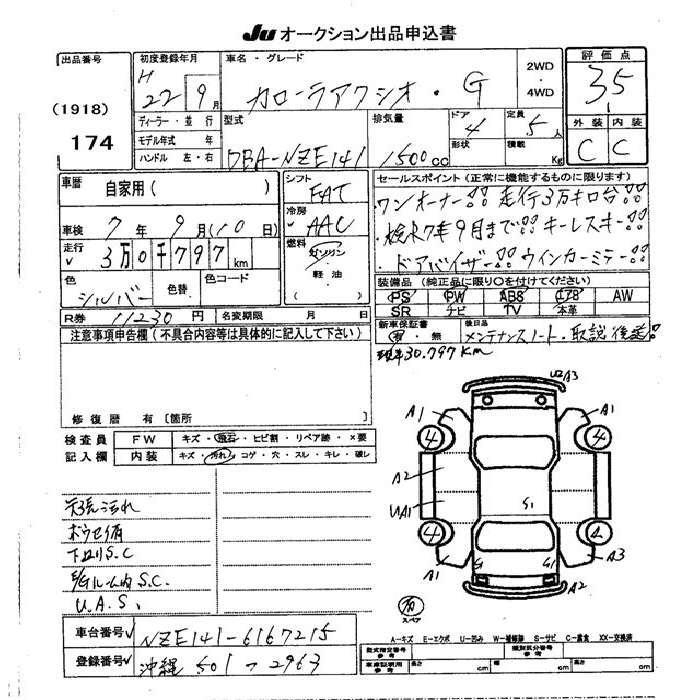 Ju オークション出品申込書
出品番号
(1918)
174
初度登録年月
H 22 9月
ディーラー・並行
モデル年式 年
ハンドル 左・右
車名 - グレード
カローラアクシオ・G
2WD
4WD
型式
DBA-NZE141
排気量
1500cc
ドア
4
形状
定員
5人
積載
Kg
評価点
3.5
外装 内装
C C
車歴
自家用( )
車検 7年 9月(10日)
走行 3万0千797km
色
シルバー
色替
色コード
シフト
FAT
冷房
AAC
燃料
ガソリン
軽油
セールスポイント(正常に機能するものに限ります)
ワンオーナー!! 走行3万キロ台!!
検R7年9月まで!! キーレスキー!!
ドアバイザー!! ウインカーミラー!!
装備品(純正品に限り○を付けてください)
PS PW ABS エアB AW
SR ナビ TV 本革
R券 11230円 名変期限 月 日
新車保証書
有・無
後日品
メンテナンスノート・取説 後送!!
現车30.797Km
注意事項申告欄(不具合内容等は具体的に記入して下さい)
修復歴 有〔箇所
検査員
記入欄
FW キズ・飛石・ヒビ割・リペア跡・X要
内装 キズ・汚れ・コゲ・穴・スル・キレ・破レ
天張汚れ
ボウセイ有
下廻りS.C
E/Gルーム内S.C.
U.A.S.
U2 A3
A1 A1
4 4
A2
UA1
S1
4 4
A1 S1 S1 A3
A2
有
スペア
車台番号 NZE141-6167215
登録番号 沖縄501つ2963
A-キズ E-エクボ U-凹み W-補修跡 S-サビ C-腐食 XX-交換済
型式指定番号
参考
類別区分番号
参考
車庫証明用
参考
長さ cm 幅 cm 高さ cm